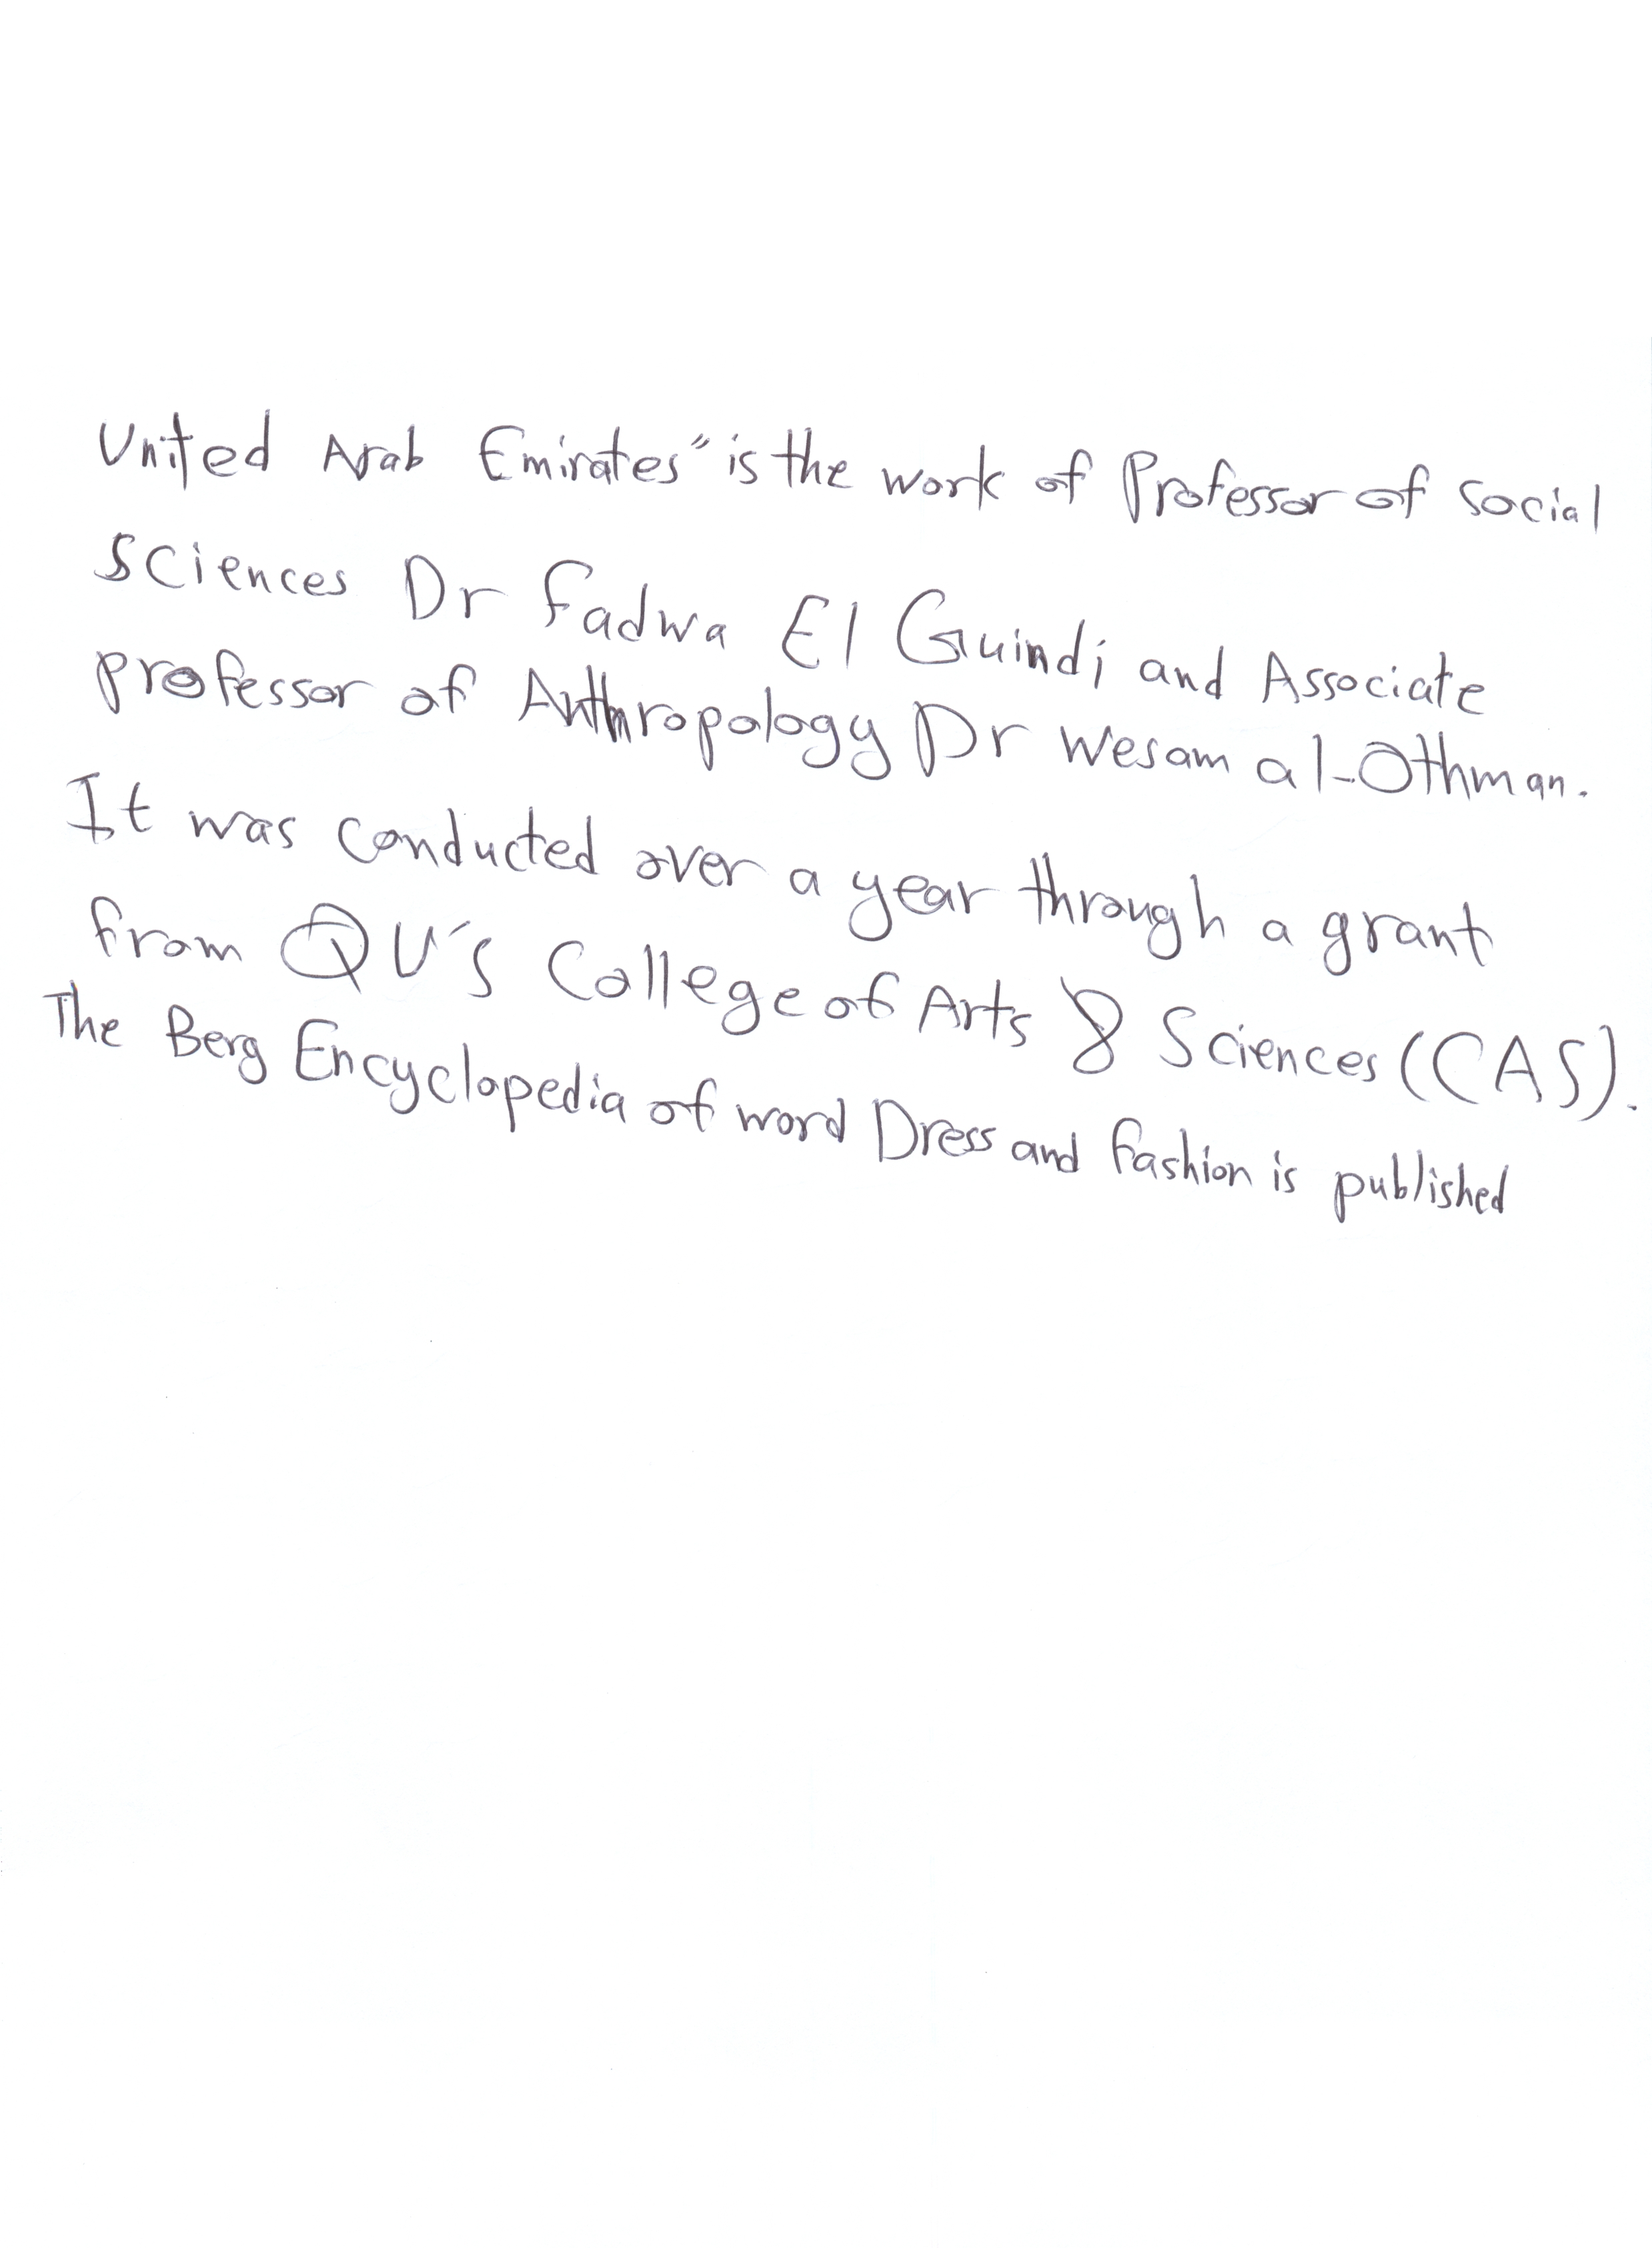 United Arab Emirates" is the work of Professor of social
sciences Dr Fadwa El Guindi and Associate
professor of Anthropology Dr Wesam al-Othman.
It was conducted over a year through a grant
from QU's College of Arts & Sciences (CAS).
The Berg Encyclopedia of word Dress and fashion is published